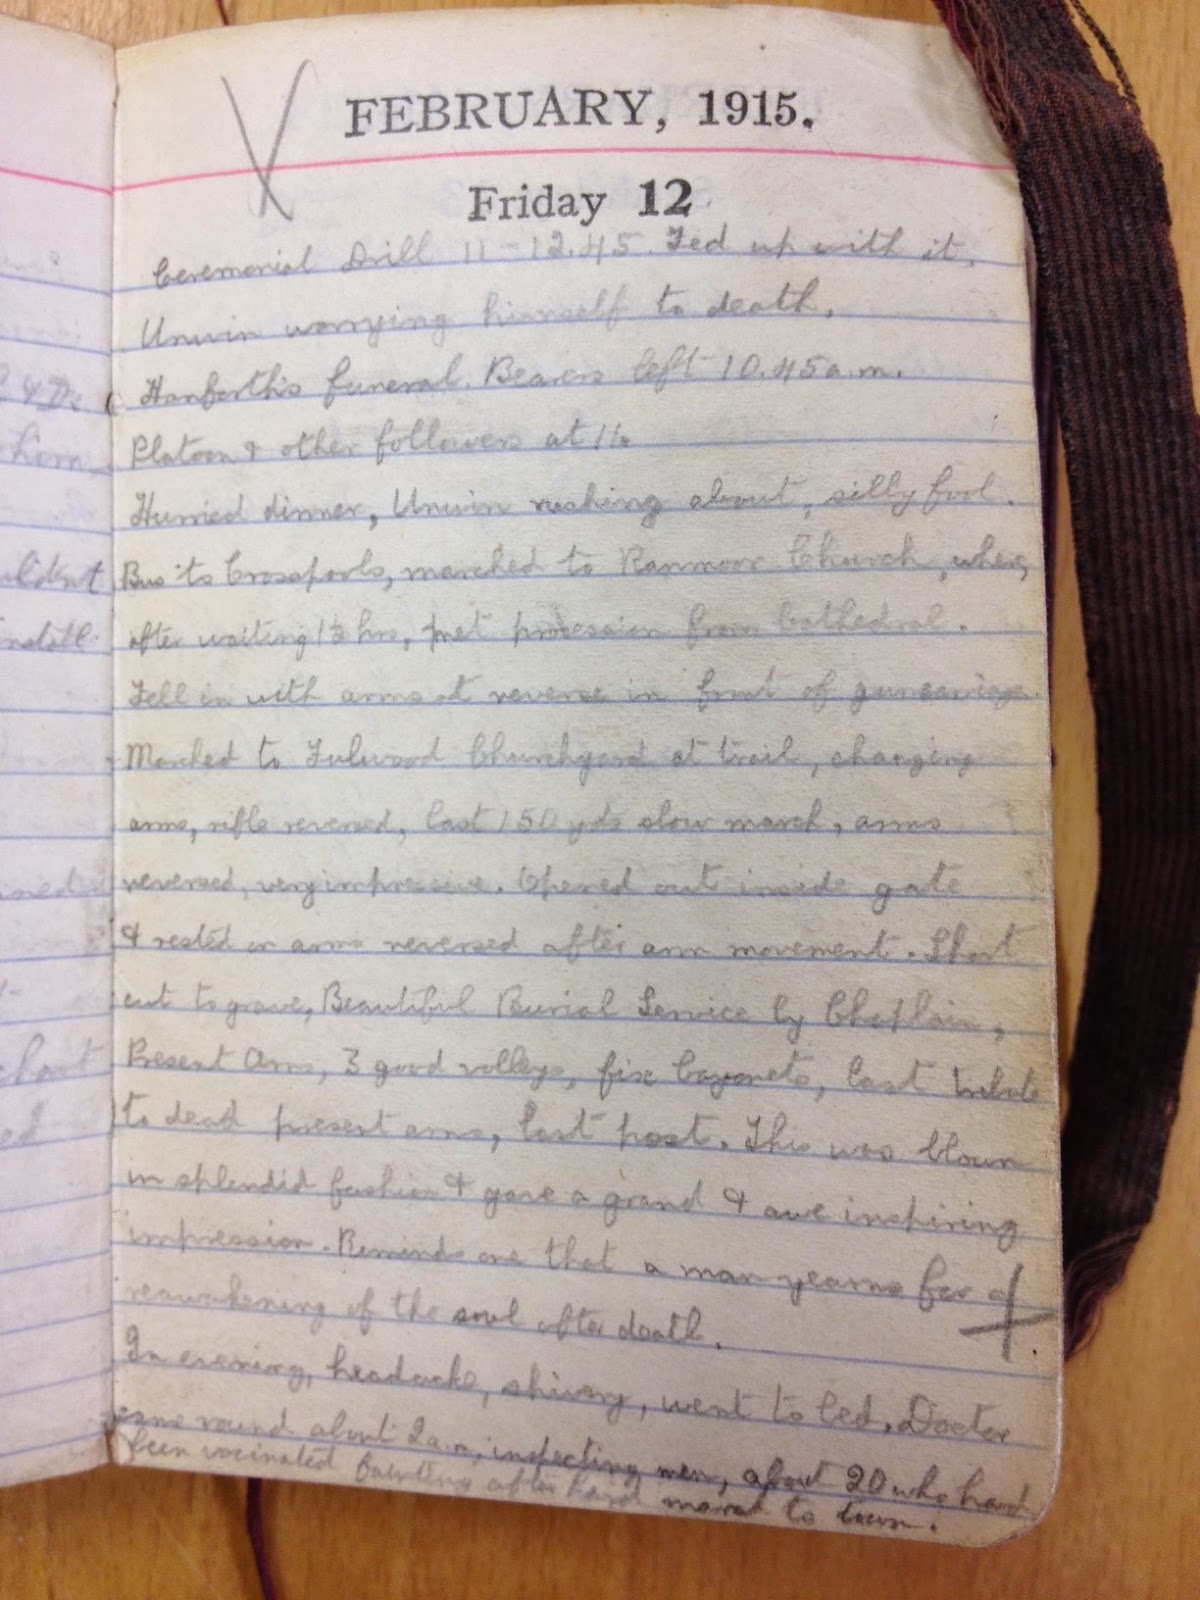 FEBRUARY, 1915.
Friday 12
Ceremonial Drill 11-12.45. Fed up with it.
Unwin worrying himself to death.
Hanforth's funeral. Bearers left 10.45 a.m.
Platoon & other followers at 11.
Hurried dinner, Unwin rushing about, silly fool.
Bus to Crosspools, marched to Ranmoor Church, where,
after waiting 1½ hrs, met procession from Cathedral.
Fell in with arms at reverse in front of guncarriage.
Marched to Fulwood Churchyard at trail, changing
arms, rifle reversed, last 150 yds slow march, arms
reversed, very impressive. Opened out inside gate
& rested on arms reversed after arm movement. Short
cut to grave, Beautiful Burial Service by Chaplain,
Present Arms, 3 good volleys, fix bayonets, last tribute
to dead present arms, last post. This was blown
in splendid fashion & gave a grand & awe inspiring
impression. Reminds one that a man yearns for a
reawakening of the soul after death.
In evening, headache, shivery, went to bed. Doctor
came round about 2 a.m, inspecting men, about 20 who had
been vaccinated fainting after hard march to town.
& D.
horn
uldn't
install
chart